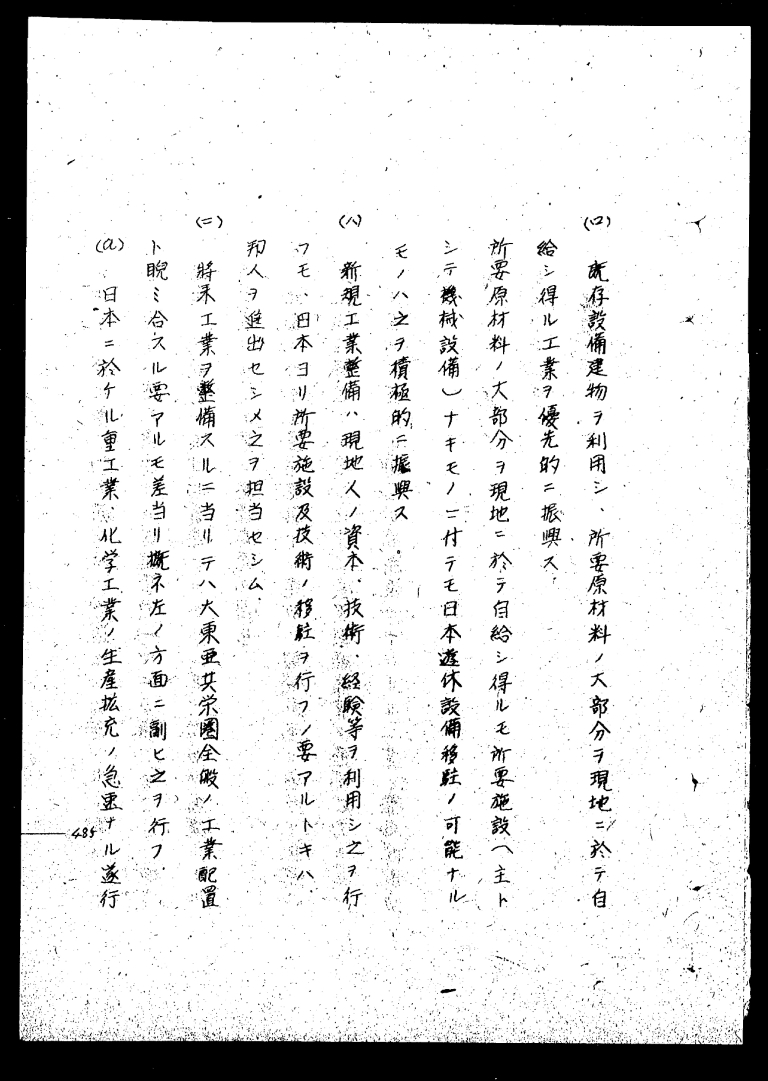 (ロ) 既存設備建物ヲ利用シ、所要原材料ノ大部分ヲ現地ニ於テ自
給シ得ル工業ヲ優先的ニ振興ス
所要原材料ノ大部分ヲ現地ニ於テ自給シ得ルモ所要施設(主ト
シテ機械設備)ナキモノニ付テモ日本遊休設備移駐ノ可能ナル
モノハ之ヲ積極的ニ振興ス。
(ハ) 新規工業整備ハ現地人ノ資本、技術、経験等ヲ利用シ之ヲ行
フモ、日本ヨリ所要施設及技術ノ移駐ヲ行フノ要アルトキハ
邦人ヲ進出セシメ之ヲ担当セシム
(ニ) 将来工業ヲ整備スルニ当リテハ大東亜共栄圏全般ノ工業配置
ト睨ミ合スル要アルモ差当リ概ネ左ノ方面ニ副ヒ之ヲ行フ
(a) 日本ニ於ケル重工業、化学工業ノ生産拡充ノ急速ナル遂行
485